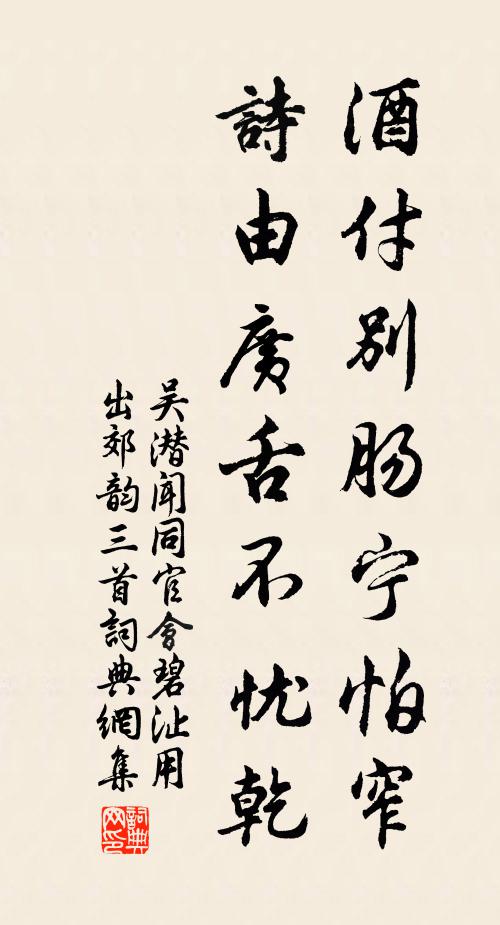 酒付别肠宁怕窄
詩由廣舌不忧乾
吴潜闻同官會碧沚用
出郊韵三首詞典網集
詞典网印